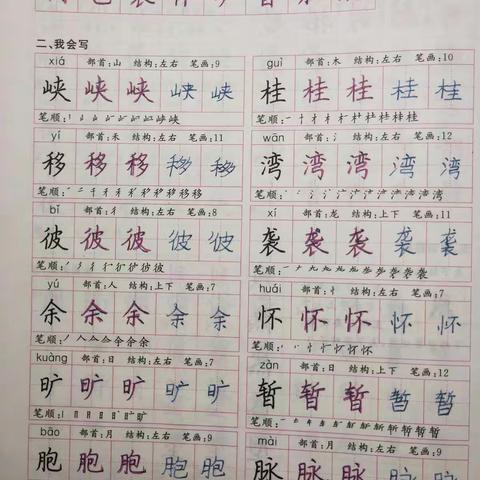 二、我会写
xiá 部首:山 结构:左右 笔画:9
guì 部首:木 结构:左右 笔画:10
峡 峡 峡 峡 峡
桂 桂 桂 桂 桂
笔顺:
笔顺:
yí 部首:禾 结构:左右 笔画:11
wān 部首:氵 结构:左右 笔画:12
移 移 移 移 移
湾 湾 湾 湾 湾
笔顺:
笔顺:
bǐ 部首:彳 结构:左右 笔画:8
xí 部首:龙 结构:上下 笔画:11
彼 彼 彼 彼 彼
袭 袭 袭 袭 袭
笔顺:
笔顺:
yú 部首:人 结构:上下 笔画:7
huái 部首:忄 结构:左右 笔画:7
余 余 余 余 余
怀 怀 怀 怀 怀
笔顺:
笔顺:
kuàng 部首:日 结构:左右 笔画:7
zàn 部首:日 结构:上下 笔画:12
旷 旷 旷 旷 旷
暂 暂 暂 暂 暂
笔顺:
笔顺:
bāo 部首:月 结构:左右 笔画:9
mài 部首:月 结构:左右 笔画:9
胞 胞 胞 胞 胞
脉 脉 脉 脉 脉